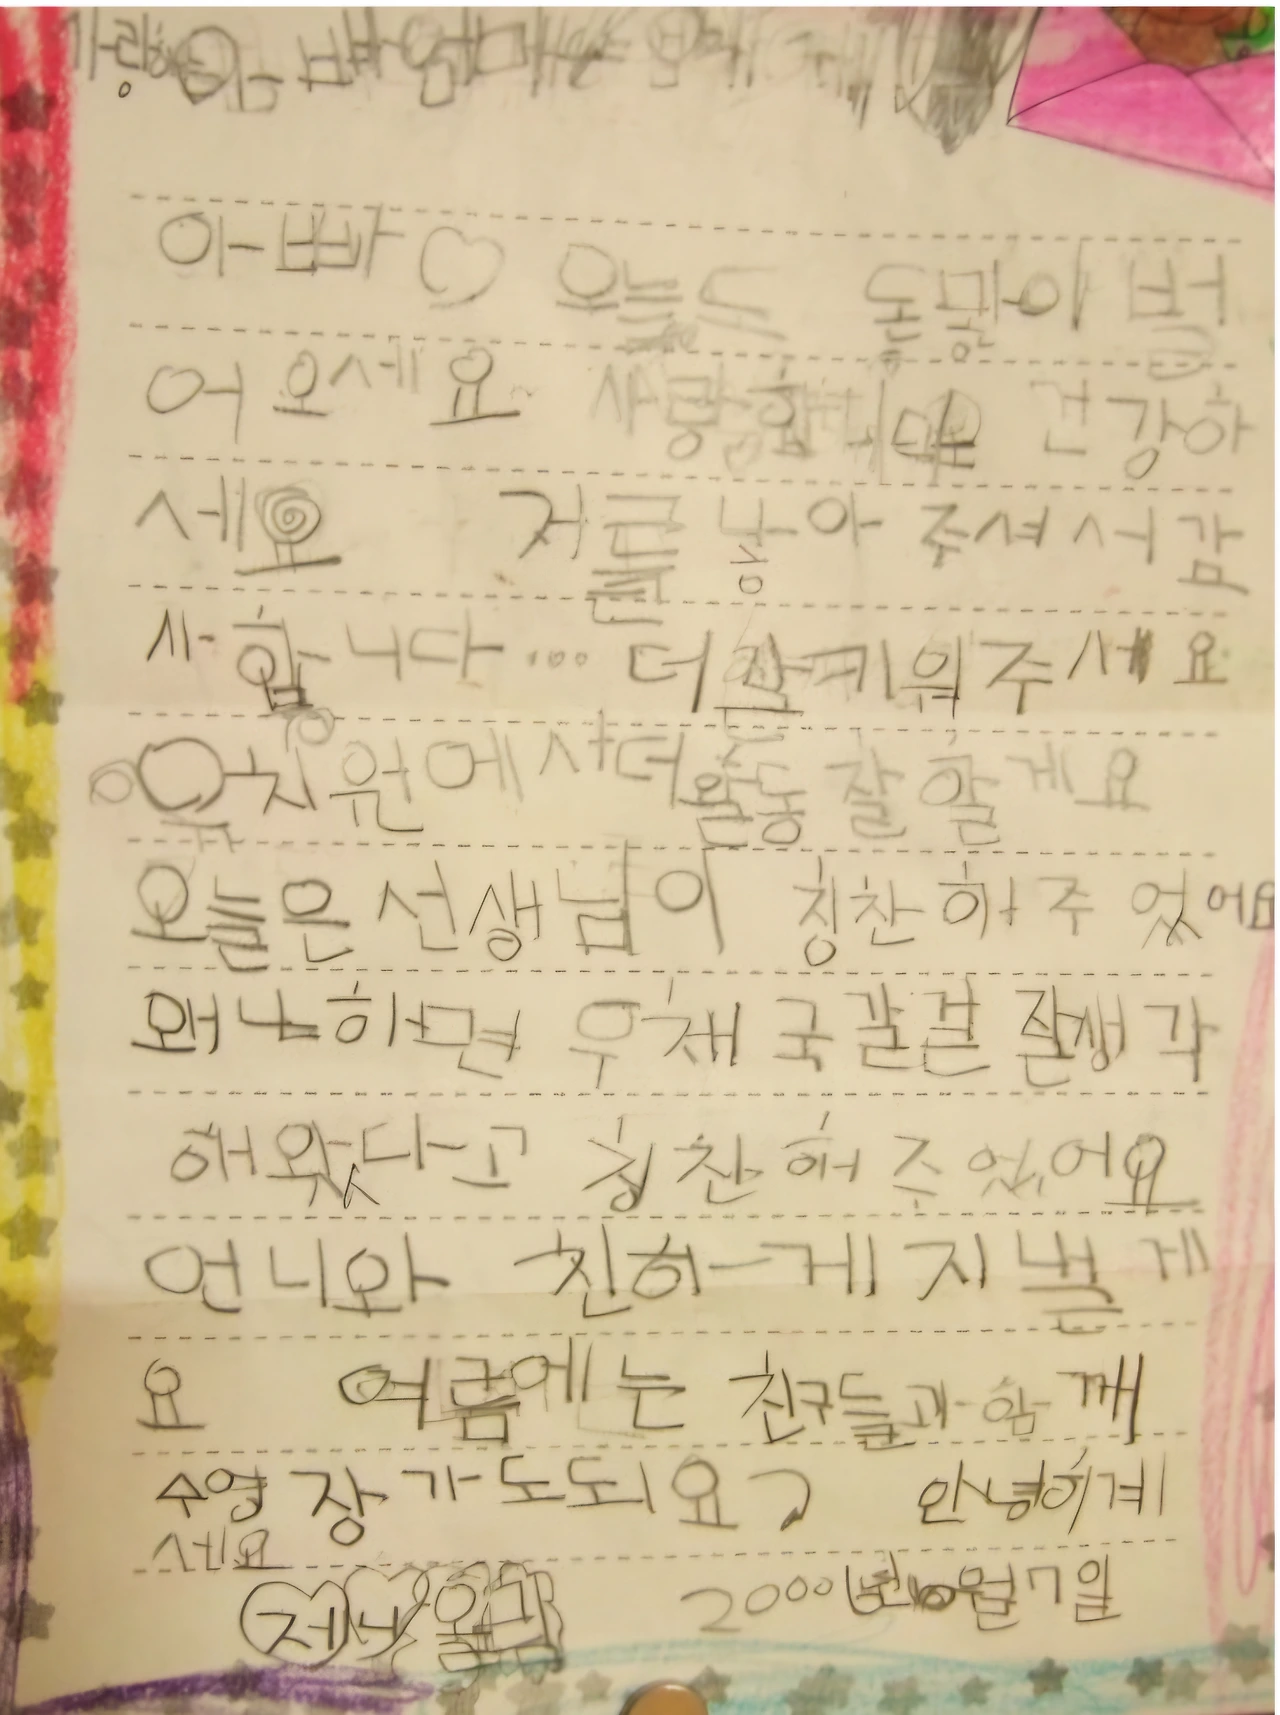 아빠♡ 오늘도 돈많이 벌
어 오세요 사랑합니다 건강하
세요 저를 낳아 주셔서 감
사합니다... 더 잘 키워주세요
유치원에서 더 활동 잘 할게요
오늘은 선생님이 칭찬하주었어요
왜나하면 우채국갈걸 잘생각
해왔다고 칭찬해 주었어요
언니와 친하게 지낼게
요 여름에는 친구들과 함깨
수영장가도되요? 안녕히계
세요
2000년 10월 7일